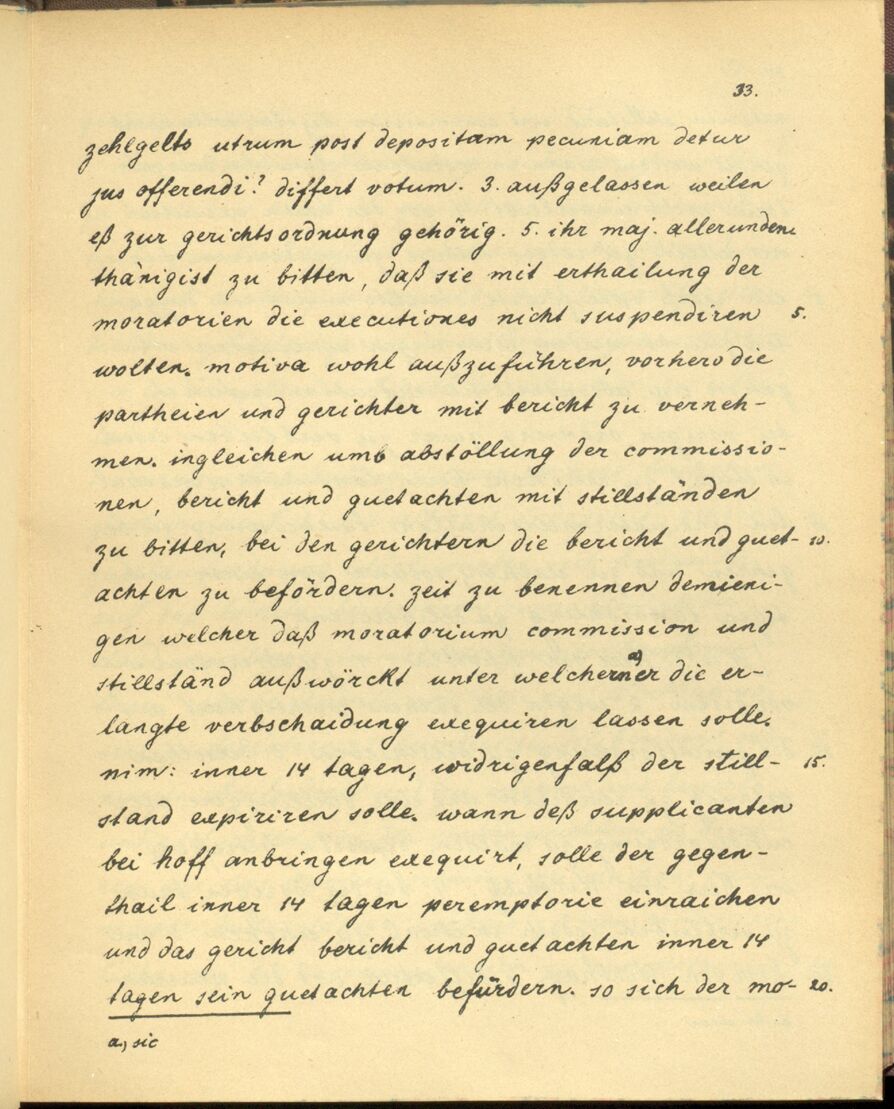 33.
zehlgelts utrum post depositam pecuniam detur
jus offerendi? differt votum. 3. außgelassen weilen
eß zur gerichtsordnung gehörig. 5. ihr maj. allerunden
thänigist zu bitten, daß sie mit erthailung der
moratorien die executiones nicht suspendiren 5.
wolten. motiva wohl außzuführen, vorhero die
partheien und gerichter mit bericht zu verneh-
men. ingleichen umb abstöllung der commissio-
nen, bericht und guetachten mit stillständen
zu bitten, bei den gerichtern die bericht und guet- 10.
achten zu befördern. zeit zu benennen demieni-
gen welcher daß moratorium commission und
stillständ außwörckt unter welcherner a) die er-
langte verbschaidung exequiren lassen solle.
nim: inner 14 tagen, widrigenfalß der still- 15.
stand expiriren solle. wann deß supplicanten
bei hoff anbringen exequirt, solle der gegen-
thail inner 14 tagen peremptorie einraichen
und das gericht bericht und guetachten inner 14
tagen sein guetachten befürdern. so sich der mo- 20.
a.) sic